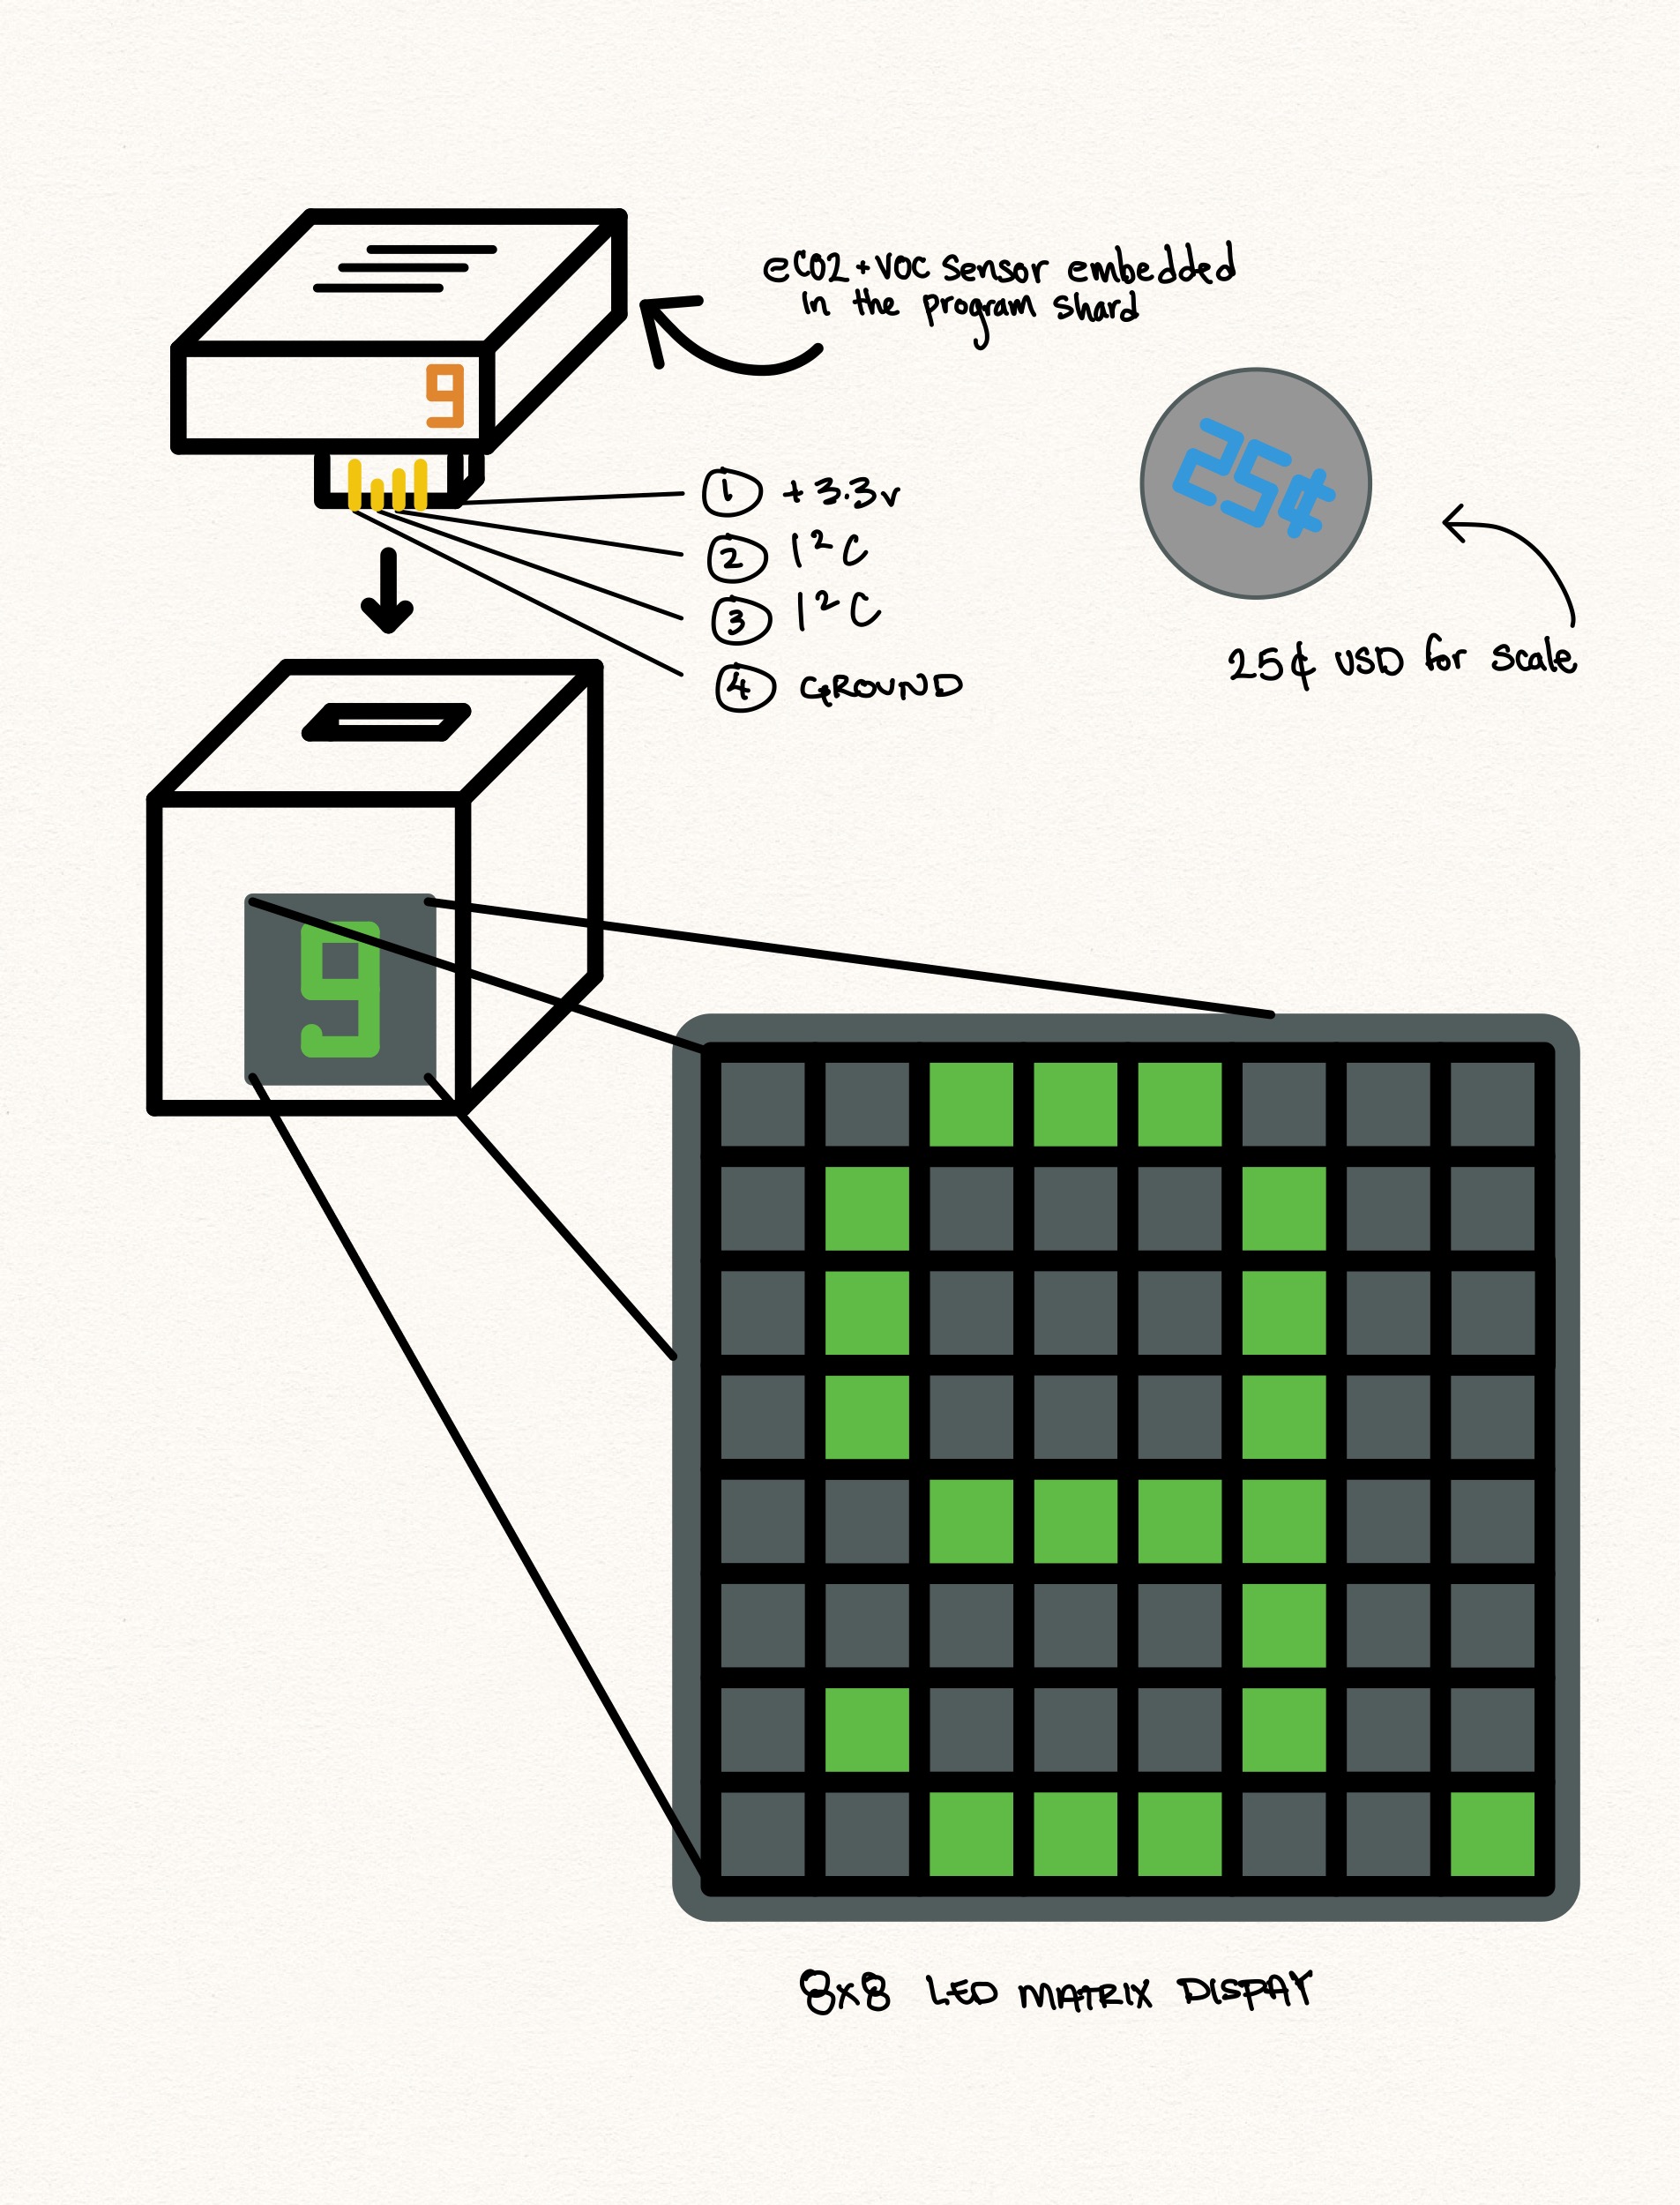 eCO2 + VOC Sensor embedded
in the program shard
9
25¢
1 + 3.3v
2 I²C
3 I²C
4 GROUND
25¢ USD for scale
9
8x8 LED MATRIX DISPAY